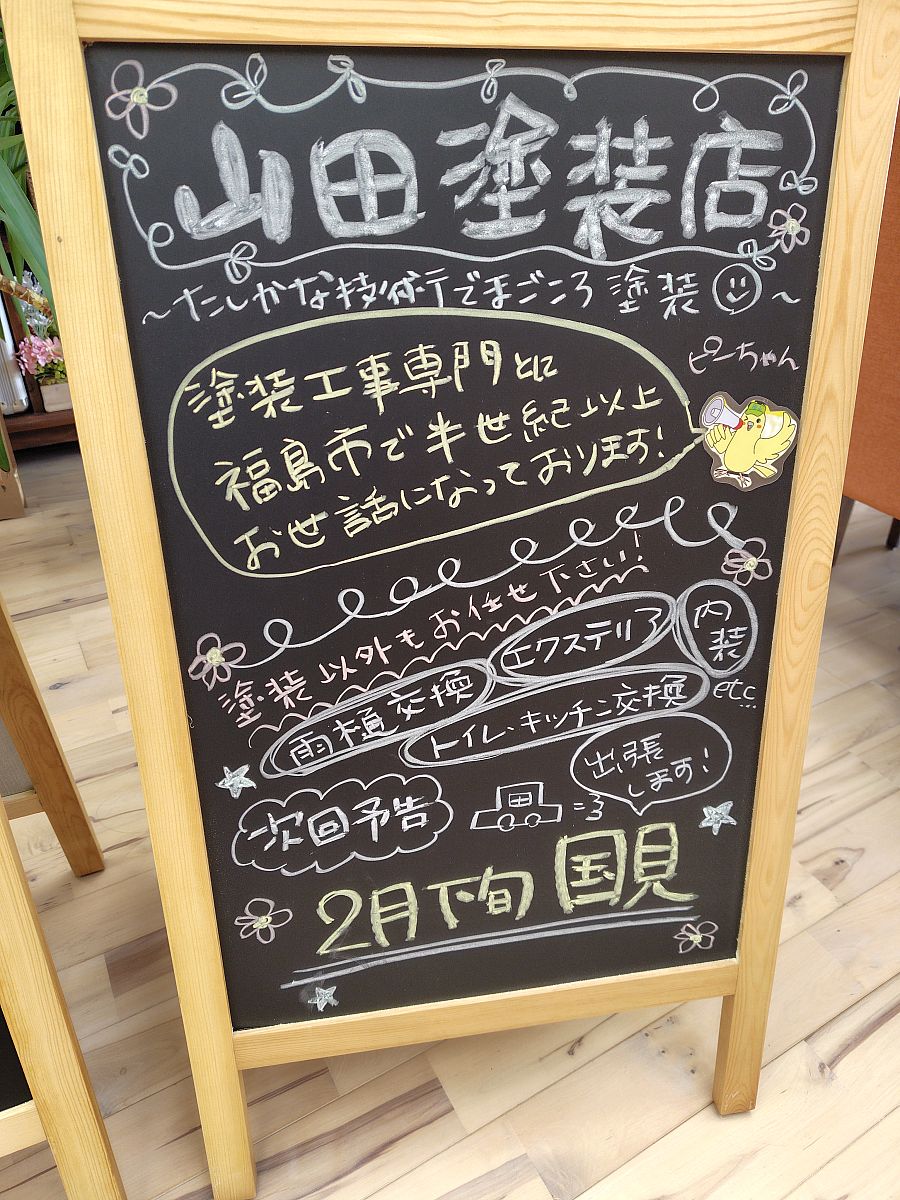 山田塗装店
~たしかな技術でまごころ塗装~
ピーちゃん
塗装工事専門とに
福島市で半世紀以上
お世話になっております!
塗装以外もお任せ下さい!
雨樋交換
エクステリア
内装
トイレ・キッチン交換
etc...
次回予告
出張
します!
2月下旬 国見